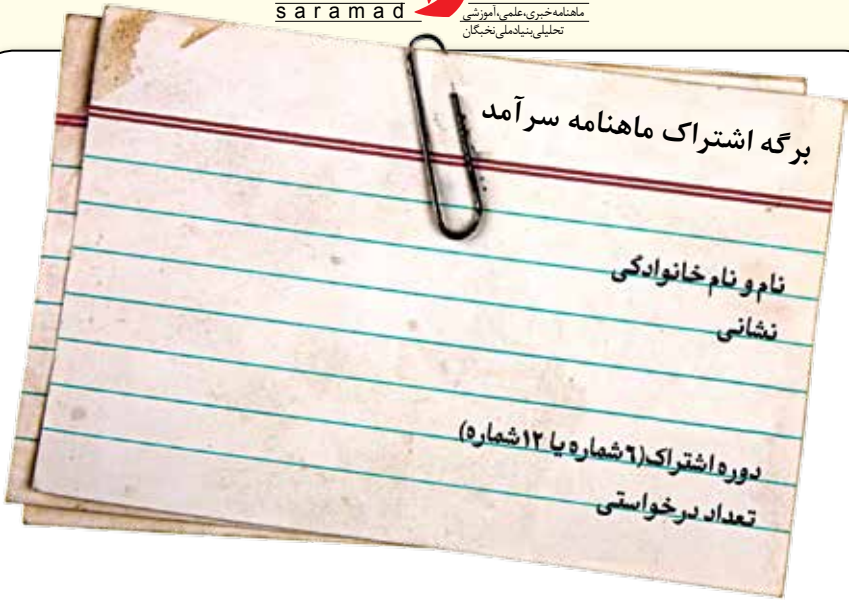 saramad
ماهنامه خبری، علمی، آموزشی
تحلیلی بنیاد ملی نخبگان
برگه اشتراک ماهنامه سرآمد
نام و نام خانوادگی
نشانی
دوره اشتراک(۶ شماره یا ۱۲ شماره)
تعداد درخواستی